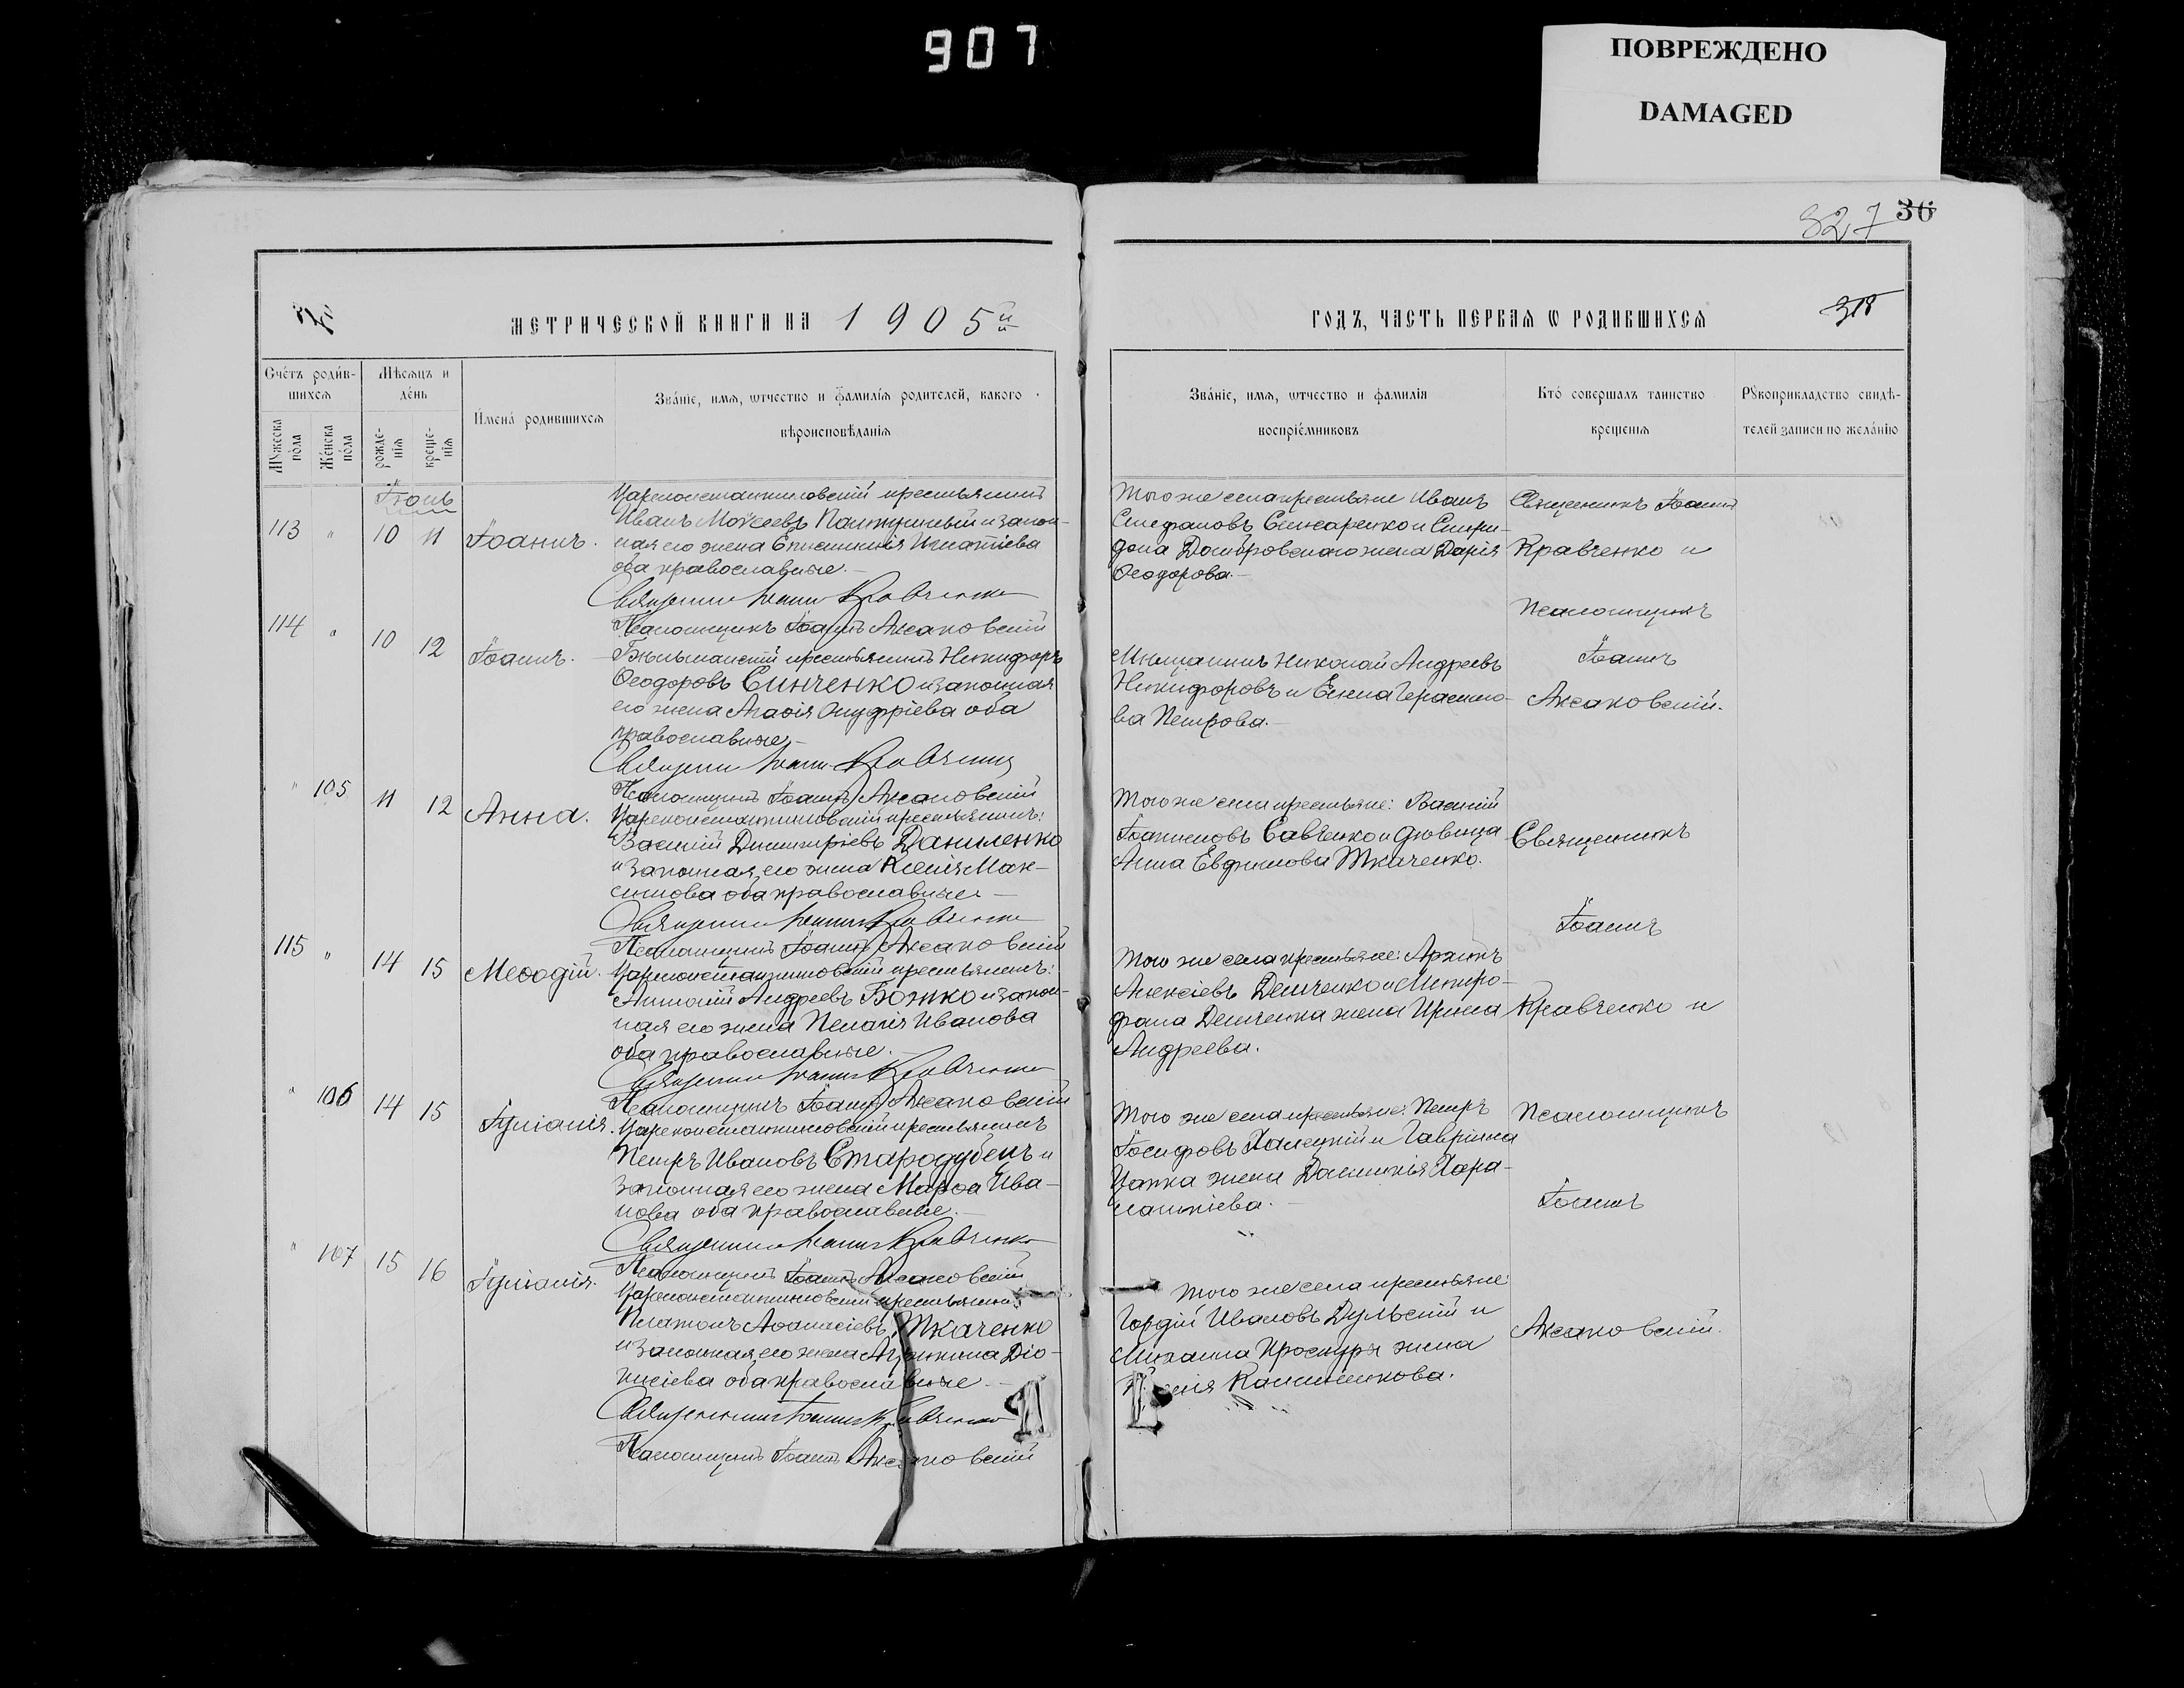 907
ПОВРЕЖДЕНО
DAMAGED
827 36
318
МЕТРИЧЕСКОЙ КНИГИ НА 1905й
ГОДЪ, ЧАСТЬ ПЕРВАЯ Ѡ РОДИВШИХСЯ
Счетъ родив-
шихся
Мужеска пола
Женска пола
Мѣсяцъ и
день
рожде-
нія
креще-
нія
Имена родившихся
Званіе, имя, ѡтчество и фамилія родителей, какого
вѣроисповѣданія
Званіе, имя, ѡтчество и фамилія
воспріемниковъ
Кто совершалъ таинство
крещенія
Рꙋкоприкладство свидѣ-
телей записи по желанію
Іюнь
113 " 10 11 Іоаннъ.
Цареконстантиновскій крестьянинъ
Иванъ Моѵсеевъ и закон-
ная его жена Игнатіева
оба православные.
Священникъ Іоаннъ Кравченко
Псаломщикъ Іоаннъ Аксаковскій
Того же села крестьяне Иванъ
Стефановъ и Спири-
дона жена Дарія
Ѳеодорова.
114 " 10 12 Іоаннъ.
Бѣльманскій крестьянинъ Никифоръ
Ѳеодоровъ Синченко и законная
его жена Агаѳія Онуфріева оба
православные
Священникъ Іоаннъ Кравченко
Псаломщикъ Іоаннъ Аксаковскій
Мѣщанинъ Николай Андреевъ
Никифоровъ и Елена Герасимо-
ва Петрова.
" 105 11 12 Анна.
Цареконстантиновскій крестьянинъ:
Василій Димитріевъ Даниленко
и законная его жена Ксенія Мак-
симова оба православные
Священникъ Іоаннъ Кравченко
Псаломщикъ Іоаннъ Аксаковскій
Того же села крестьяне: Василій
Савченко и дѣвица
Анна Евфимова Ткаченко.
115 " 14 15 Меѳодій.
Цареконстантиновскій крестьянинъ:
Антоній Андреевъ Божко и закон-
ная его жена Пелагія Иванова
оба православные.
Священникъ Іоаннъ Кравченко
Псаломщикъ Іоаннъ Аксаковскій
Того же села крестьяне: Архипъ
Алексіевъ Демченко и Митро-
фана Демченка жена Ирина
Андреева.
" 106 14 15 Іуліанія.
Цареконстантиновскій крестьянинъ
Петръ Ивановъ Стародубецъ и
законная его жена Марѳа Ива-
нова оба православные.
Священникъ Іоаннъ Кравченко
Псаломщикъ Іоаннъ Аксаковскій
Того же села крестьяне: Петръ
Іосифовъ и Гавріила
жена Домникія Хара-
лампіева.
" 107 15 16 Іуліанія.
Цареконстантиновскій крестьянинъ:
Платонъ Аѳанасіевъ Ткаченко
и законная его жена Діо-
нисіева оба православные
Священникъ Іоаннъ Кравченко
Псаломщикъ Іоаннъ Аксаковскій
Того же села крестьяне
Гордій Ивановъ Дульскій и
Михаила Проскуря жена
Священникъ Іоаннъ
Кравченко и
Псаломщикъ
Іоаннъ
Аксаковскій.
Священникъ
Іоаннъ
Кравченко и
Псаломщикъ
Іоаннъ
Аксаковскій.